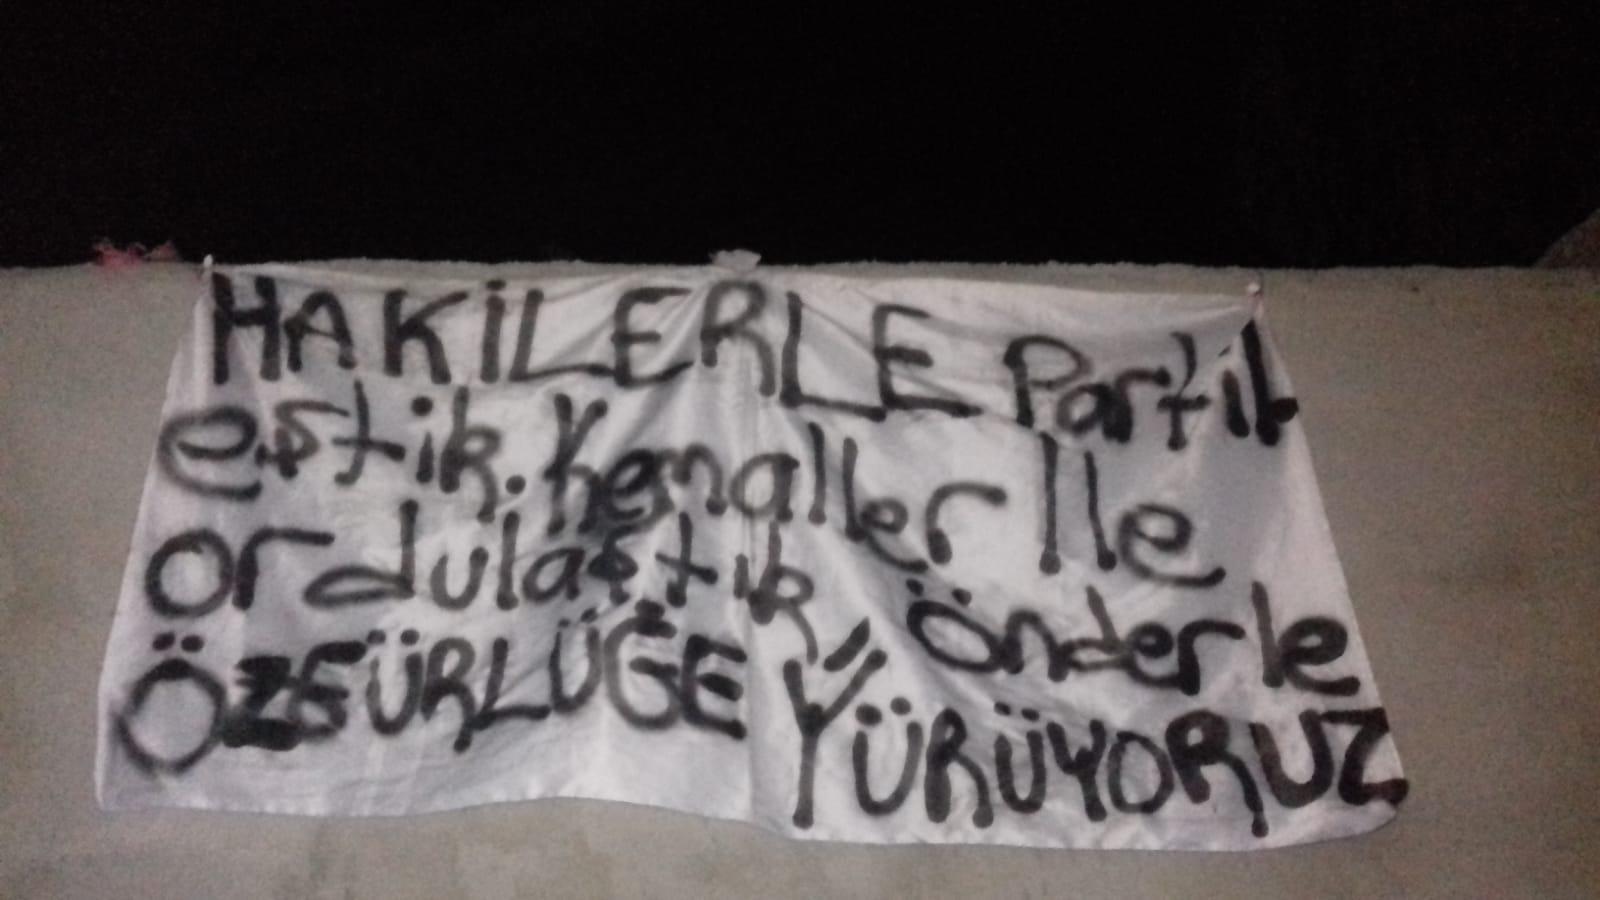 HAKİLERLE Partil
eştik. Kemaller İle
ordulaştık Önderle
ÖZGÜRLÜĞE YÜRÜYORUZ